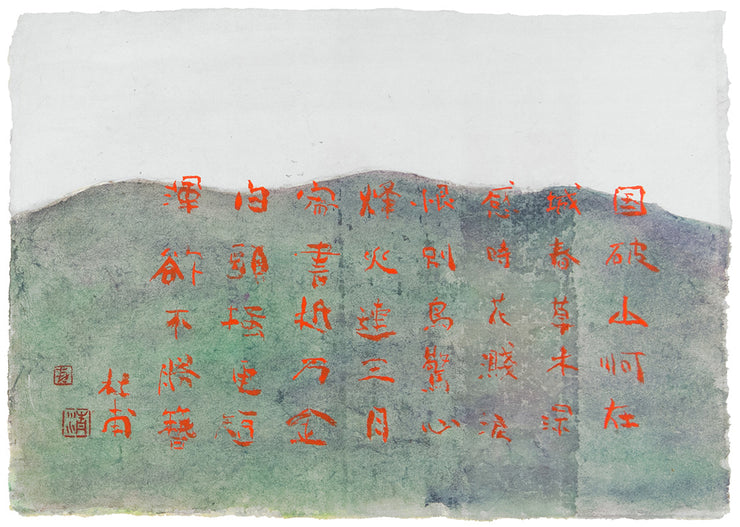 国破山河在
城春草木深
感時花濺涙
恨別鳥驚心
烽火連三月
家書抵万金
白頭掻更短
渾欲不勝簪
杜甫